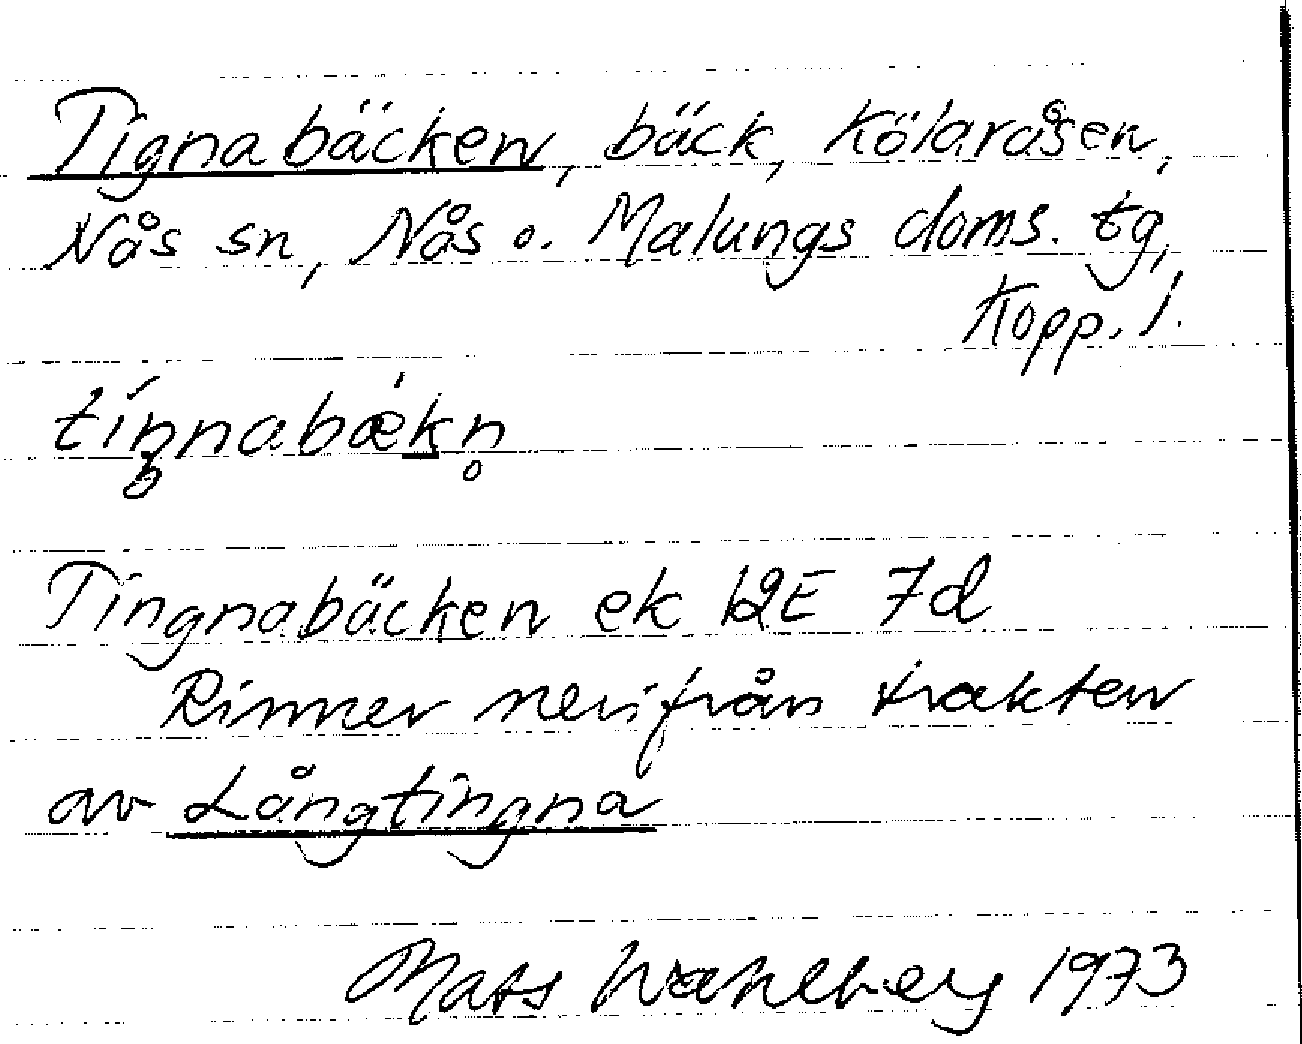 Tignabäcken, bäck, Kölaråsen,
Nås sn, Nås o. Malungs doms. tg,
Kopp. l.
tíŋnabæ̀kn̥
Tingnabäcken ek 12E 7d
Rinner nerifrån trakten
av Långtingna
Mats Wahlberg 1973